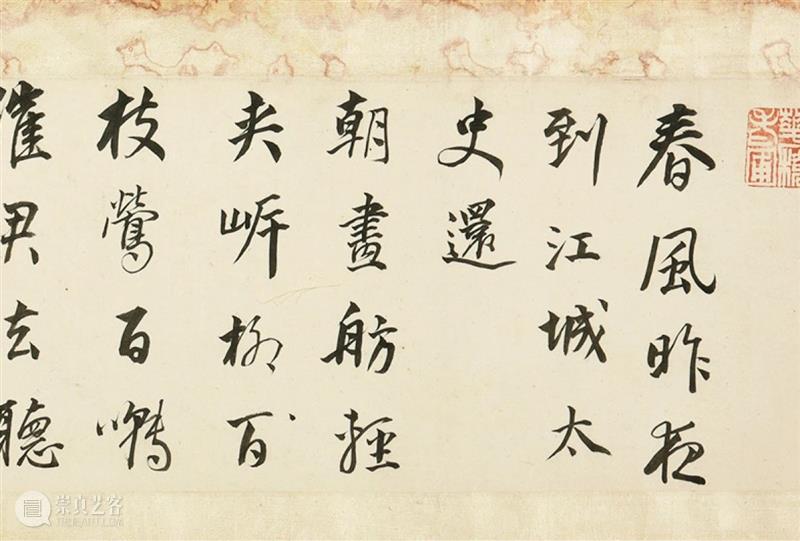 春風昨夜
到江城太
史還
朝畫舫輕
夾岸柳百
枝鶯百囀
催君去聽
崇真艺客
TRUEART.COM